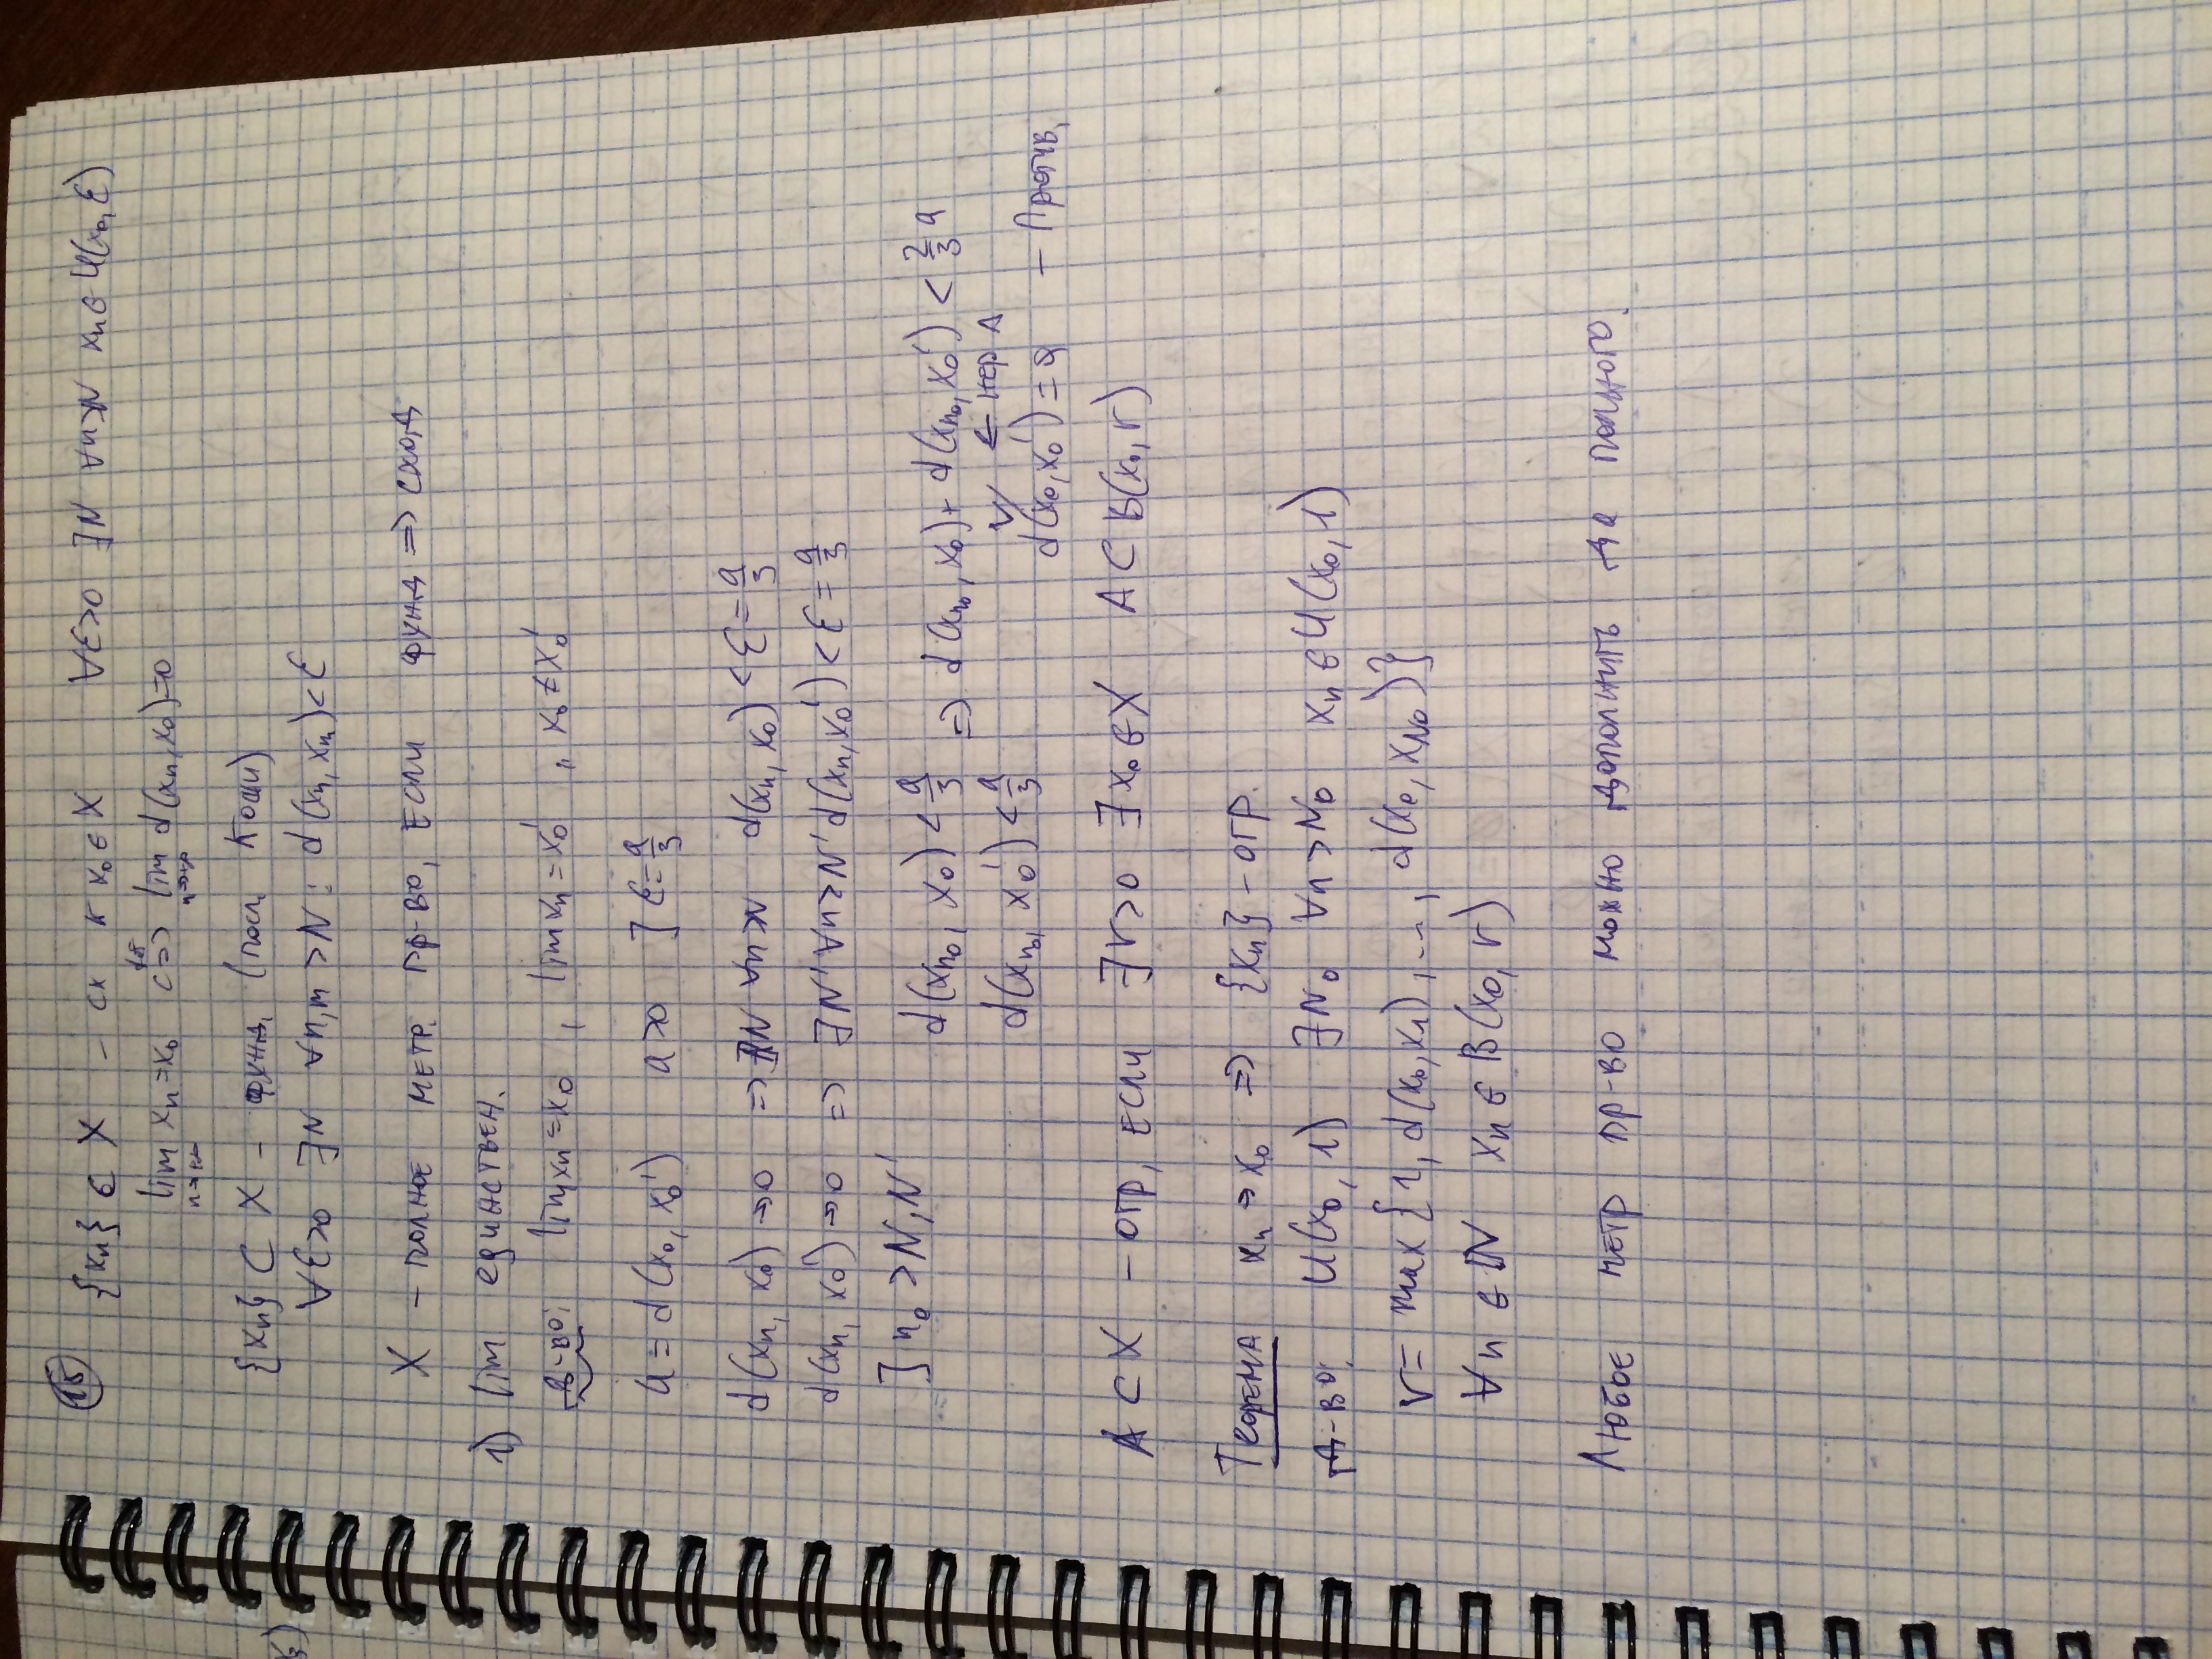 15
{xₙ} ∈ X – сх к x₀ ∈ X ∀ε>0 ∃N ∀n>N xₙ ∈ U(x₀, ε)
lim xₙ = x₀ <=> lim d(xₙ, x₀) = 0
n→+∞ n→+∞
{xₙ} ⊂ X – фунд. (посл. Коши)
∀ε>0 ∃N ∀n,m>N : d(xₙ, xₘ) < ε
X – полное метр. пр-во, если фунд => сход
1) lim единствен.
Д-во: lim xₙ = x₀ , lim xₙ = x₀' , x₀ ≠ x₀'
a = d(x₀, x₀') a>0 ] ε = a/3
d(xₙ, x₀) → 0 => ∃N ∀n>N d(xₙ, x₀) < ε = a/3
d(xₙ, x₀') → 0 => ∃N' ∀n>N' d(xₙ, x₀') < ε = a/3
] n₀ > N, N'
d(xₙ₀, x₀) < a/3 => d(xₙ₀, x₀) + d(xₙ₀, x₀') < 2/3 a
d(xₙ₀, x₀') < a/3 ∨/ ← нер Δ
d(x₀, x₀') = a – Против.
A ⊂ X – огр, если ∃r>0 ∃x₀ ∈ X A ⊂ B(x₀, r)
Теорема xₙ → x₀ => {xₙ} – огр.
Д-во: U(x₀, 1) ∃N₀ ∀n > N₀ xₙ ∈ U(x₀, 1)
r = max{1, d(x₀, x₁), ..., d(x₀, x_N₀)}
∀n ∈ ℕ xₙ ∈ B(x₀, r)
Любое метр пр-во можно дополнить до полного.